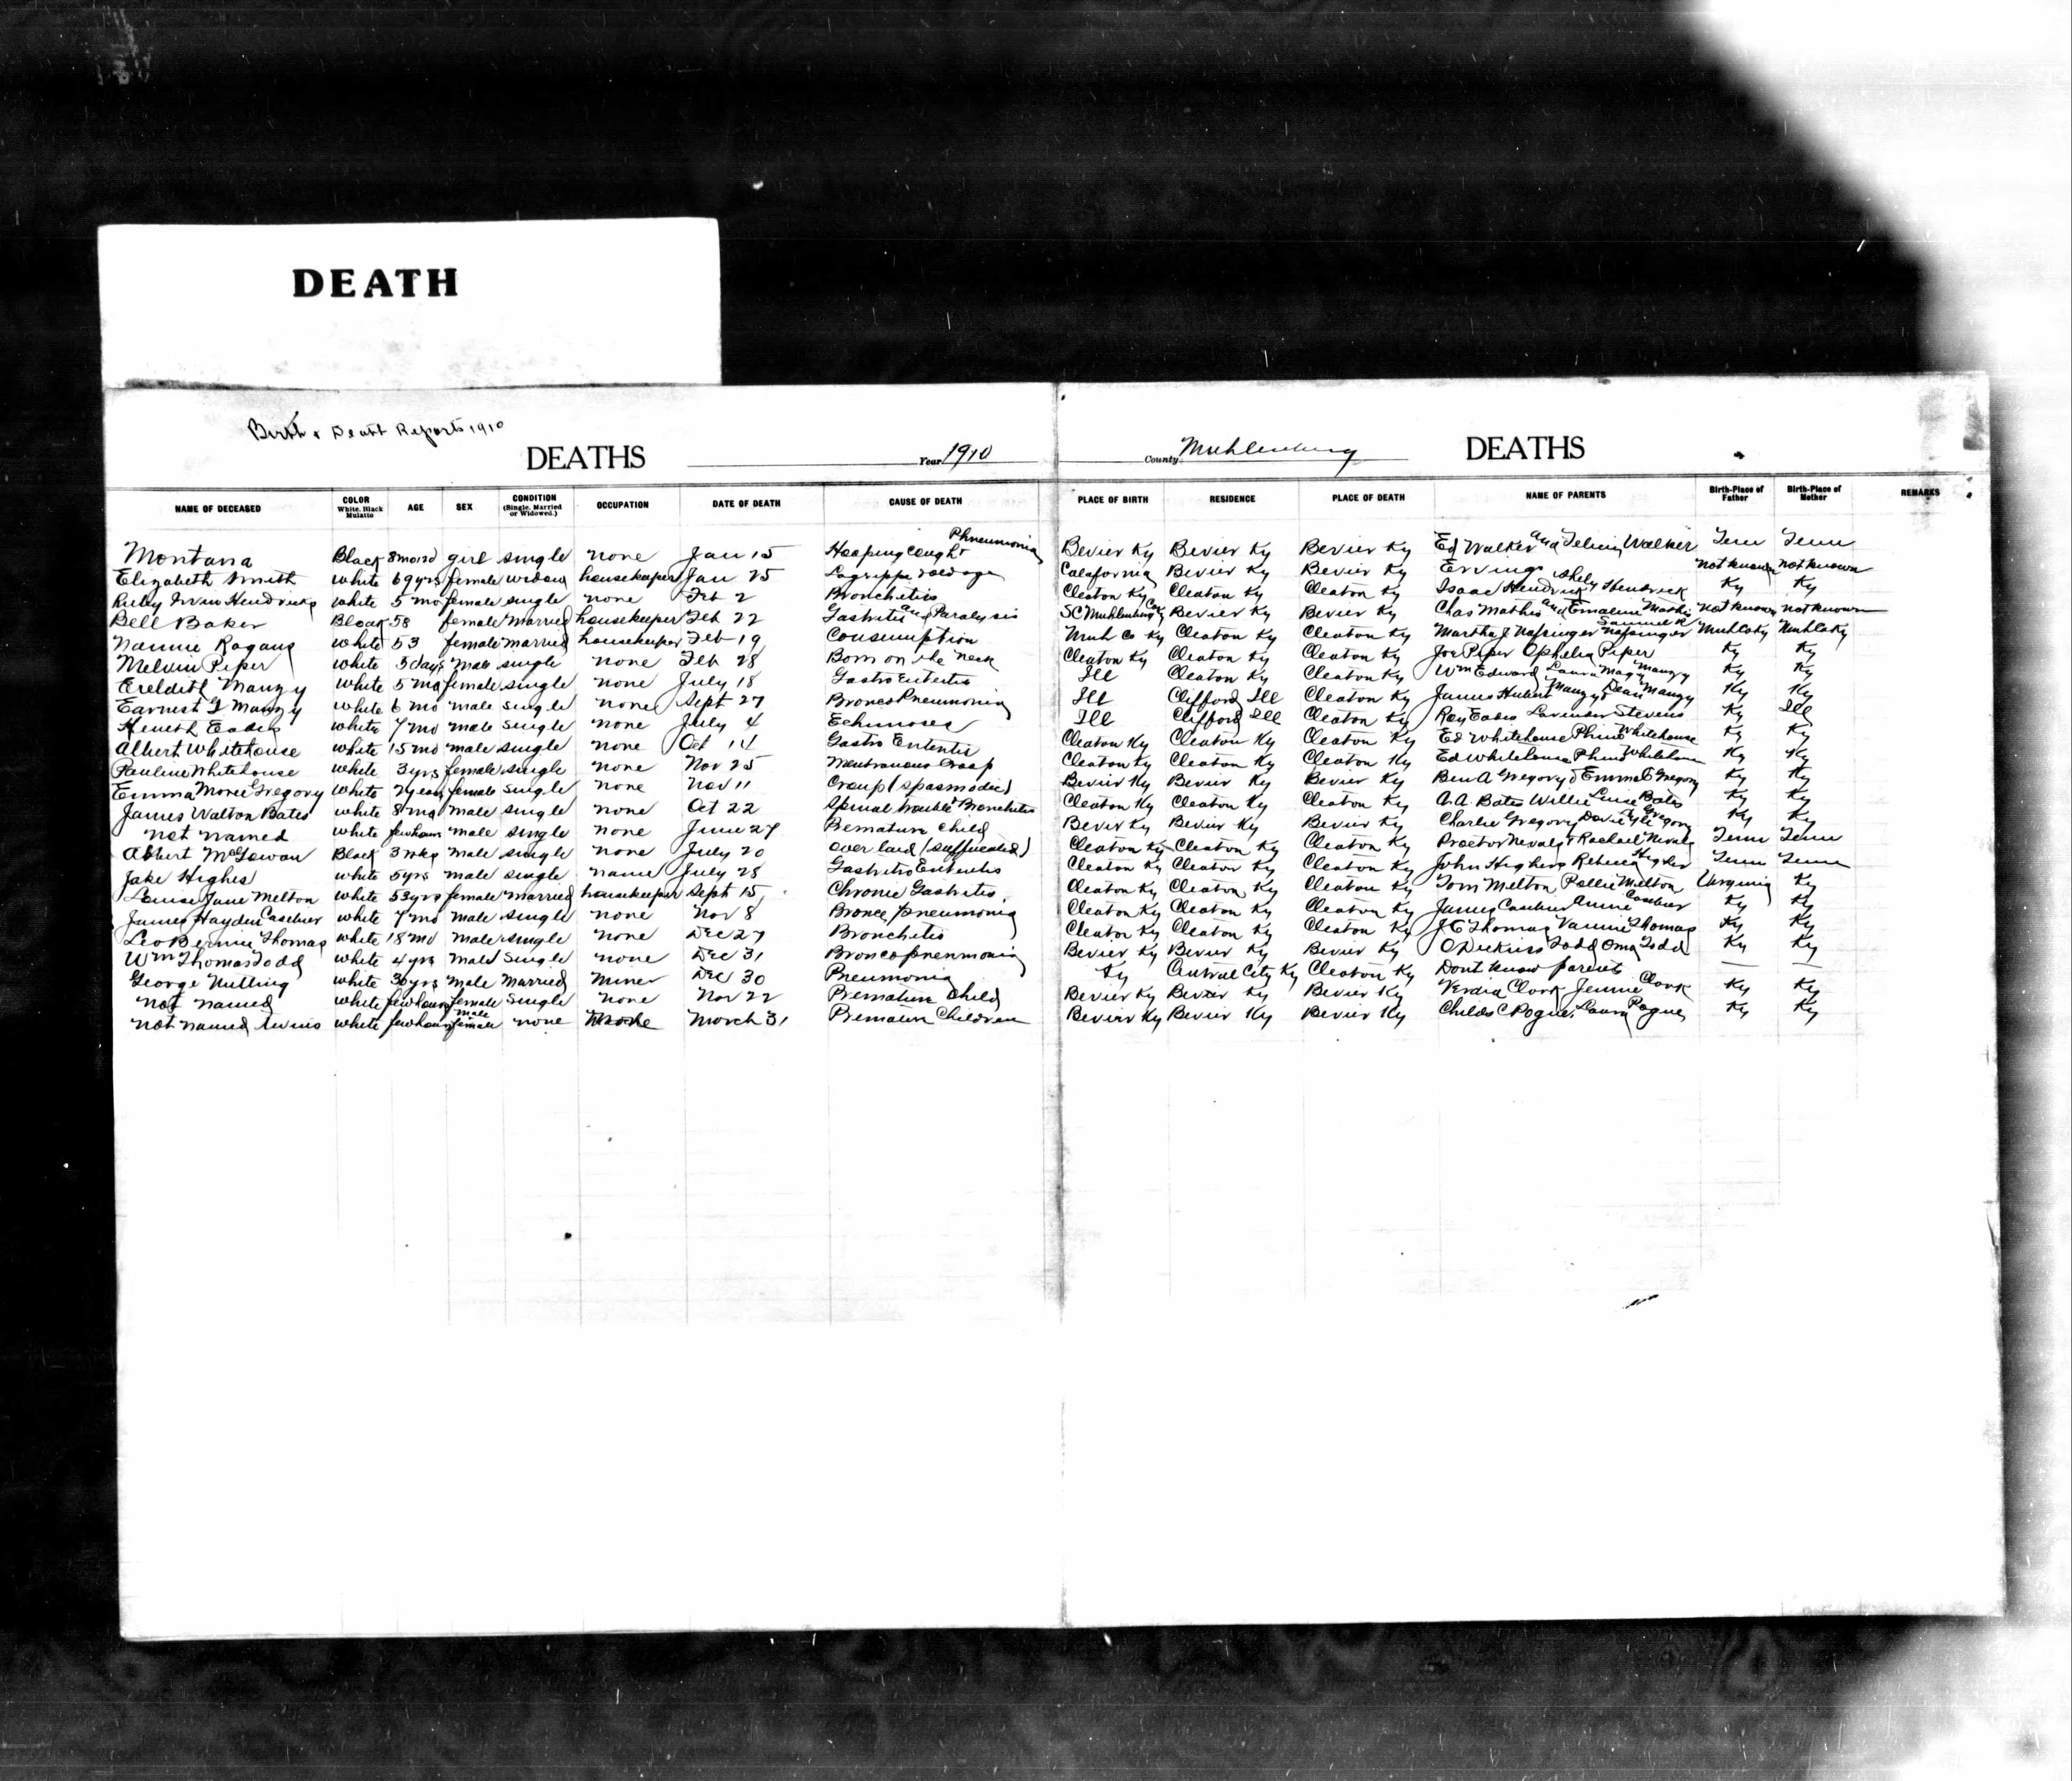 DEATH
Birth & Death Reports 1910
DEATHS Year 1910 County Muhlenburg DEATHS
NAME OF DECEASED COLOR White, Black Mulatto AGE SEX CONDITION (Single, Married or Widowed.) OCCUPATION DATE OF DEATH CAUSE OF DEATH PLACE OF BIRTH RESIDENCE PLACE OF DEATH NAME OF PARENTS Birth-Place of Father Birth-Place of Mother REMARKS
Montana Black girl single none Jan 15 Hooping Cough Phneumonia Bevier Ky Bevier Ky Bevier Ky Ed Walker and Walker Tenn Tenn
Elizabeth Smith white 69 yrs female widow housekeeper Jan 25 Lagrippe old age Calafornia Bevier Ky Bevier Ky Erving not known not known
Ruby Irvin Hendricks white 5 mo female single none Feb 2 Bronchetis Cleaton Ky Cleaton Ky Cleaton Ky Isaac Hendrick Hendrick Ky Ky
Bell Baker Black 58 female married housekeeper Feb 22 Gastritis and Paralysis Muhlenburg Co Bevier Ky Bevier Ky Chas Mathis and Emaline Mathis not known not known
Nannie Ragans white 53 female married housekeeper Feb 19 Consumption Muh Co Ky Cleaton Ky Cleaton Ky Martha J Nofsinger Samuel R Nofsinger Muhl Co Ky Muhl Co Ky
Melvin Piper white 3 days Male single none Feb 28 Born on the neck Cleaton Ky Cleaton Ky Cleaton Ky Joe Piper Ophelia Piper Ky Ky
Ereldith Mauzy white 5 mo female single none July 18 Gastro Enteritis Ill Cleaton Ky Cleaton Ky Wm Edward Laura May Mauzy Ky Ky
Earnest G Mauzy white 6 mo male single none Sept 27 Bronco Pneumonia Ill Clifford Ill Cleaton Ky James Hubert Mauzy & Dean Mauzy Ky Ill
Heneth Eades white 7 mo male single none July 4 Ill Clifford Ill Cleaton Ky Ray Eades Lavender Stevens Ky Ky
Albert Whitehouse white 15 mo male single none Oct 14 Gastro Enteritis Cleaton Ky Cleaton Ky Cleaton Ky Ed Whitehouse Whitehouse Ky Ky
Pauline Whitehouse white 3 yrs female single none Nov 25 Croop Cleaton Ky Cleaton Ky Cleaton Ky Ed Whitehouse Whitehouse Ky Ky
Emma Marie Gregory white 2 years female single none Nov 11 Croup (spasmodic) Bevier Ky Bevier Ky Bevier Ky Ben A Gregory & Emma C Gregory Ky Ky
James Walton Bates white 8 mo male single none Oct 22 Spinal trouble Bronchetis Cleaton Ky Cleaton Ky Cleaton Ky A.A. Bates Willie Luise Bates Ky Ky
not named white few hours male single none June 27 Premature child Bevier Ky Bevier Ky Bevier Ky Charlie Gregory Gregory Ky Ky
Albert McGowan Black 3 wks male single none July 20 over laid (suffocated) Cleaton Ky Cleaton Ky Cleaton Ky Proctor Nevals & Rachael Nevals Tenn Tenn
Jake Highes white 5 yrs male single name July 28 Gastritis Enteritis Cleaton Ky Cleaton Ky Cleaton Ky John Highes Rebecca Highes Tenn Tenn
Louise Jane Melton white 53 yrs female married housekeeper Sept 15 Chronic Gastritis Cleaton Ky Cleaton Ky Cleaton Ky Tom Melton Pollie Melton Virginia Ky
James Hayden Casebier white 7 mo male single none Nov 8 Bronco pneumonia Cleaton Ky Cleaton Ky Cleaton Ky James Casebier Annie Casebier Ky Ky
Leo Bernie Thomas white 18 mo male single none Dec 27 Bronchetis Cleaton Ky Cleaton Ky Cleaton Ky J C Thomas Thomas Ky Ky
Wm Thomas Todd white 4 yrs male single none Dec 31 Broncopneumonia Bevier Ky Bevier Ky Bevier Ky Todd Oma Todd Ky Ky
George Nutting white 36 yrs male Married miner Dec 30 Pneumonia Ky Central City Ky Cleaton Ky Dont know parents — —
not named white few hours female single none Nov 22 Premature Child Bevier Ky Bevier Ky Bevier Ky Verdia Clark Jennie Clark Ky Ky
not named twins white few hours male female none none March 31 Premature Children Bevier Ky Bevier Ky Bevier Ky Childs C Pogue Laura Pogue Ky Ky